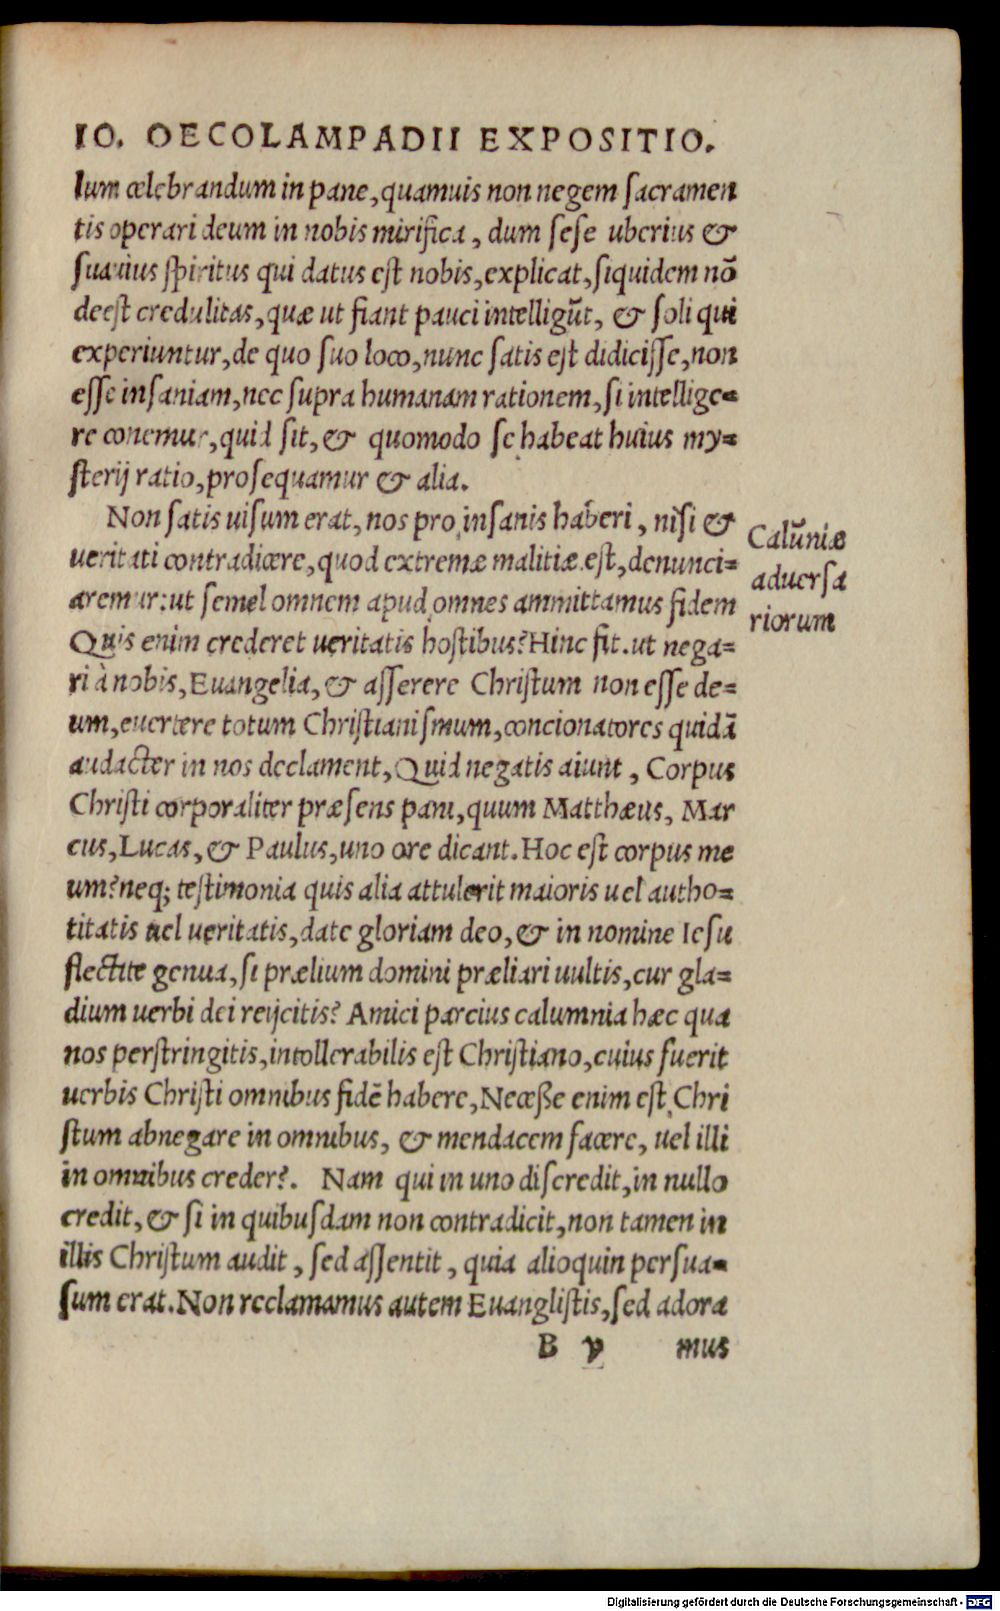 IO. OECOLAMPADII EXPOSITIO.
lum celebrandum in pane, quamuis non negem sacramen
tis operari deum in nobis mirifica, dum sese uberius &
suauius spiritus qui datus est nobis, explicat, siquidem nõ
deest credulitas, quæ ut fiant pauci intelligũt, & soli qui
experiuntur, de quo suo loco, nunc satis est didicisse, non
esse insaniam, nec supra humanam rationem, si intellige=
re conemur, quid sit, & quomodo se habeat huius my=
sterij ratio, prosequamur & alia.
Non satis uisum erat, nos pro insanis haberi, nisi &
ueritati contradicere, quod extremæ malitiæ est, denunci=
aremur: ut semel omnem apud omnes ammittamus fidem
Quis enim crederet ueritatis hostibus? Hinc fit. ut nega=
ri à nobis, Euangelia, & asserere Christum non esse de=
um, euertere totum Christianismum, concionatores quidã
audacter in nos declament, Quid negatis aiunt, Corpus
Christi corporaliter præsens pani, quum Matthæus, Mar
cus, Lucas, & Paulus, uno ore dicant. Hoc est corpus me
um? neq; testimonia quis alia attulerit maioris uel autho=
titatis uel ueritatis, date gloriam deo, & in nomine Iesu
flectite genua, si prælium domini præliari uultis, cur gla=
dium uerbi dei reijcitis? Amici parcius calumnia hæc qua
nos perstringitis, intollerabilis est Christiano, cuius fuerit
uerbis Christi omnibus fidẽ habere, Necesse enim est Chri
stum abnegare in omnibus, & mendacem facere, uel illi
in omnibus creder?. Nam qui in uno discredit, in nullo
credit, & si in quibusdam non contradicit, non tamen in
illis Christum audit, sed assentit, quia alioquin persua=
sum erat. Non reclamamus autem Euanglistis, sed adora
B v mus
Calũniæ
aduersa
riorum
Digitalisierung gefördert durch die Deutsche Forschungsgemeinschaft - DFG